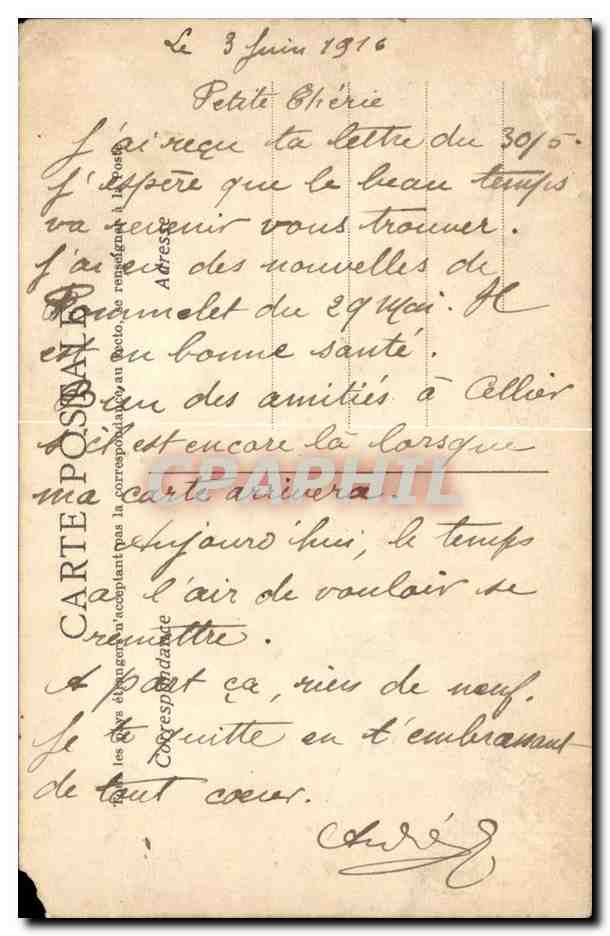 Le 3 Juin 1916
Petite Chérie
J'ai reçu ta lettre du 30/5.
J'espère que le beau temps
va revenir vous trouver.
J'ai eu des nouvelles de
du 29 Mai. Il
est en bonne santé.
des amitiés à Cellier
s'il est encore là lorsque
ma carte arrivera.
Aujourd'hui, le temps
a l'air de vouloir se
remettre.
A part ça, rien de neuf.
Je te quitte en t'embrassant
de tout coeur.
André
CARTE POSTALE
Tous les pays étrangers n'acceptant pas la correspondance au recto, se renseigner à la poste
Correspondance
Adresse
CPAPHIL